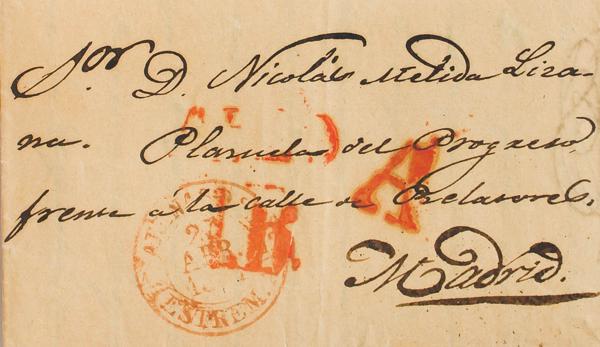 S.or D. Nicolás Melida Liza-
na. Plazuela del Progreso
frente á la calle de Relatores.
Madrid.
A
1R
ABR
ESTREM.